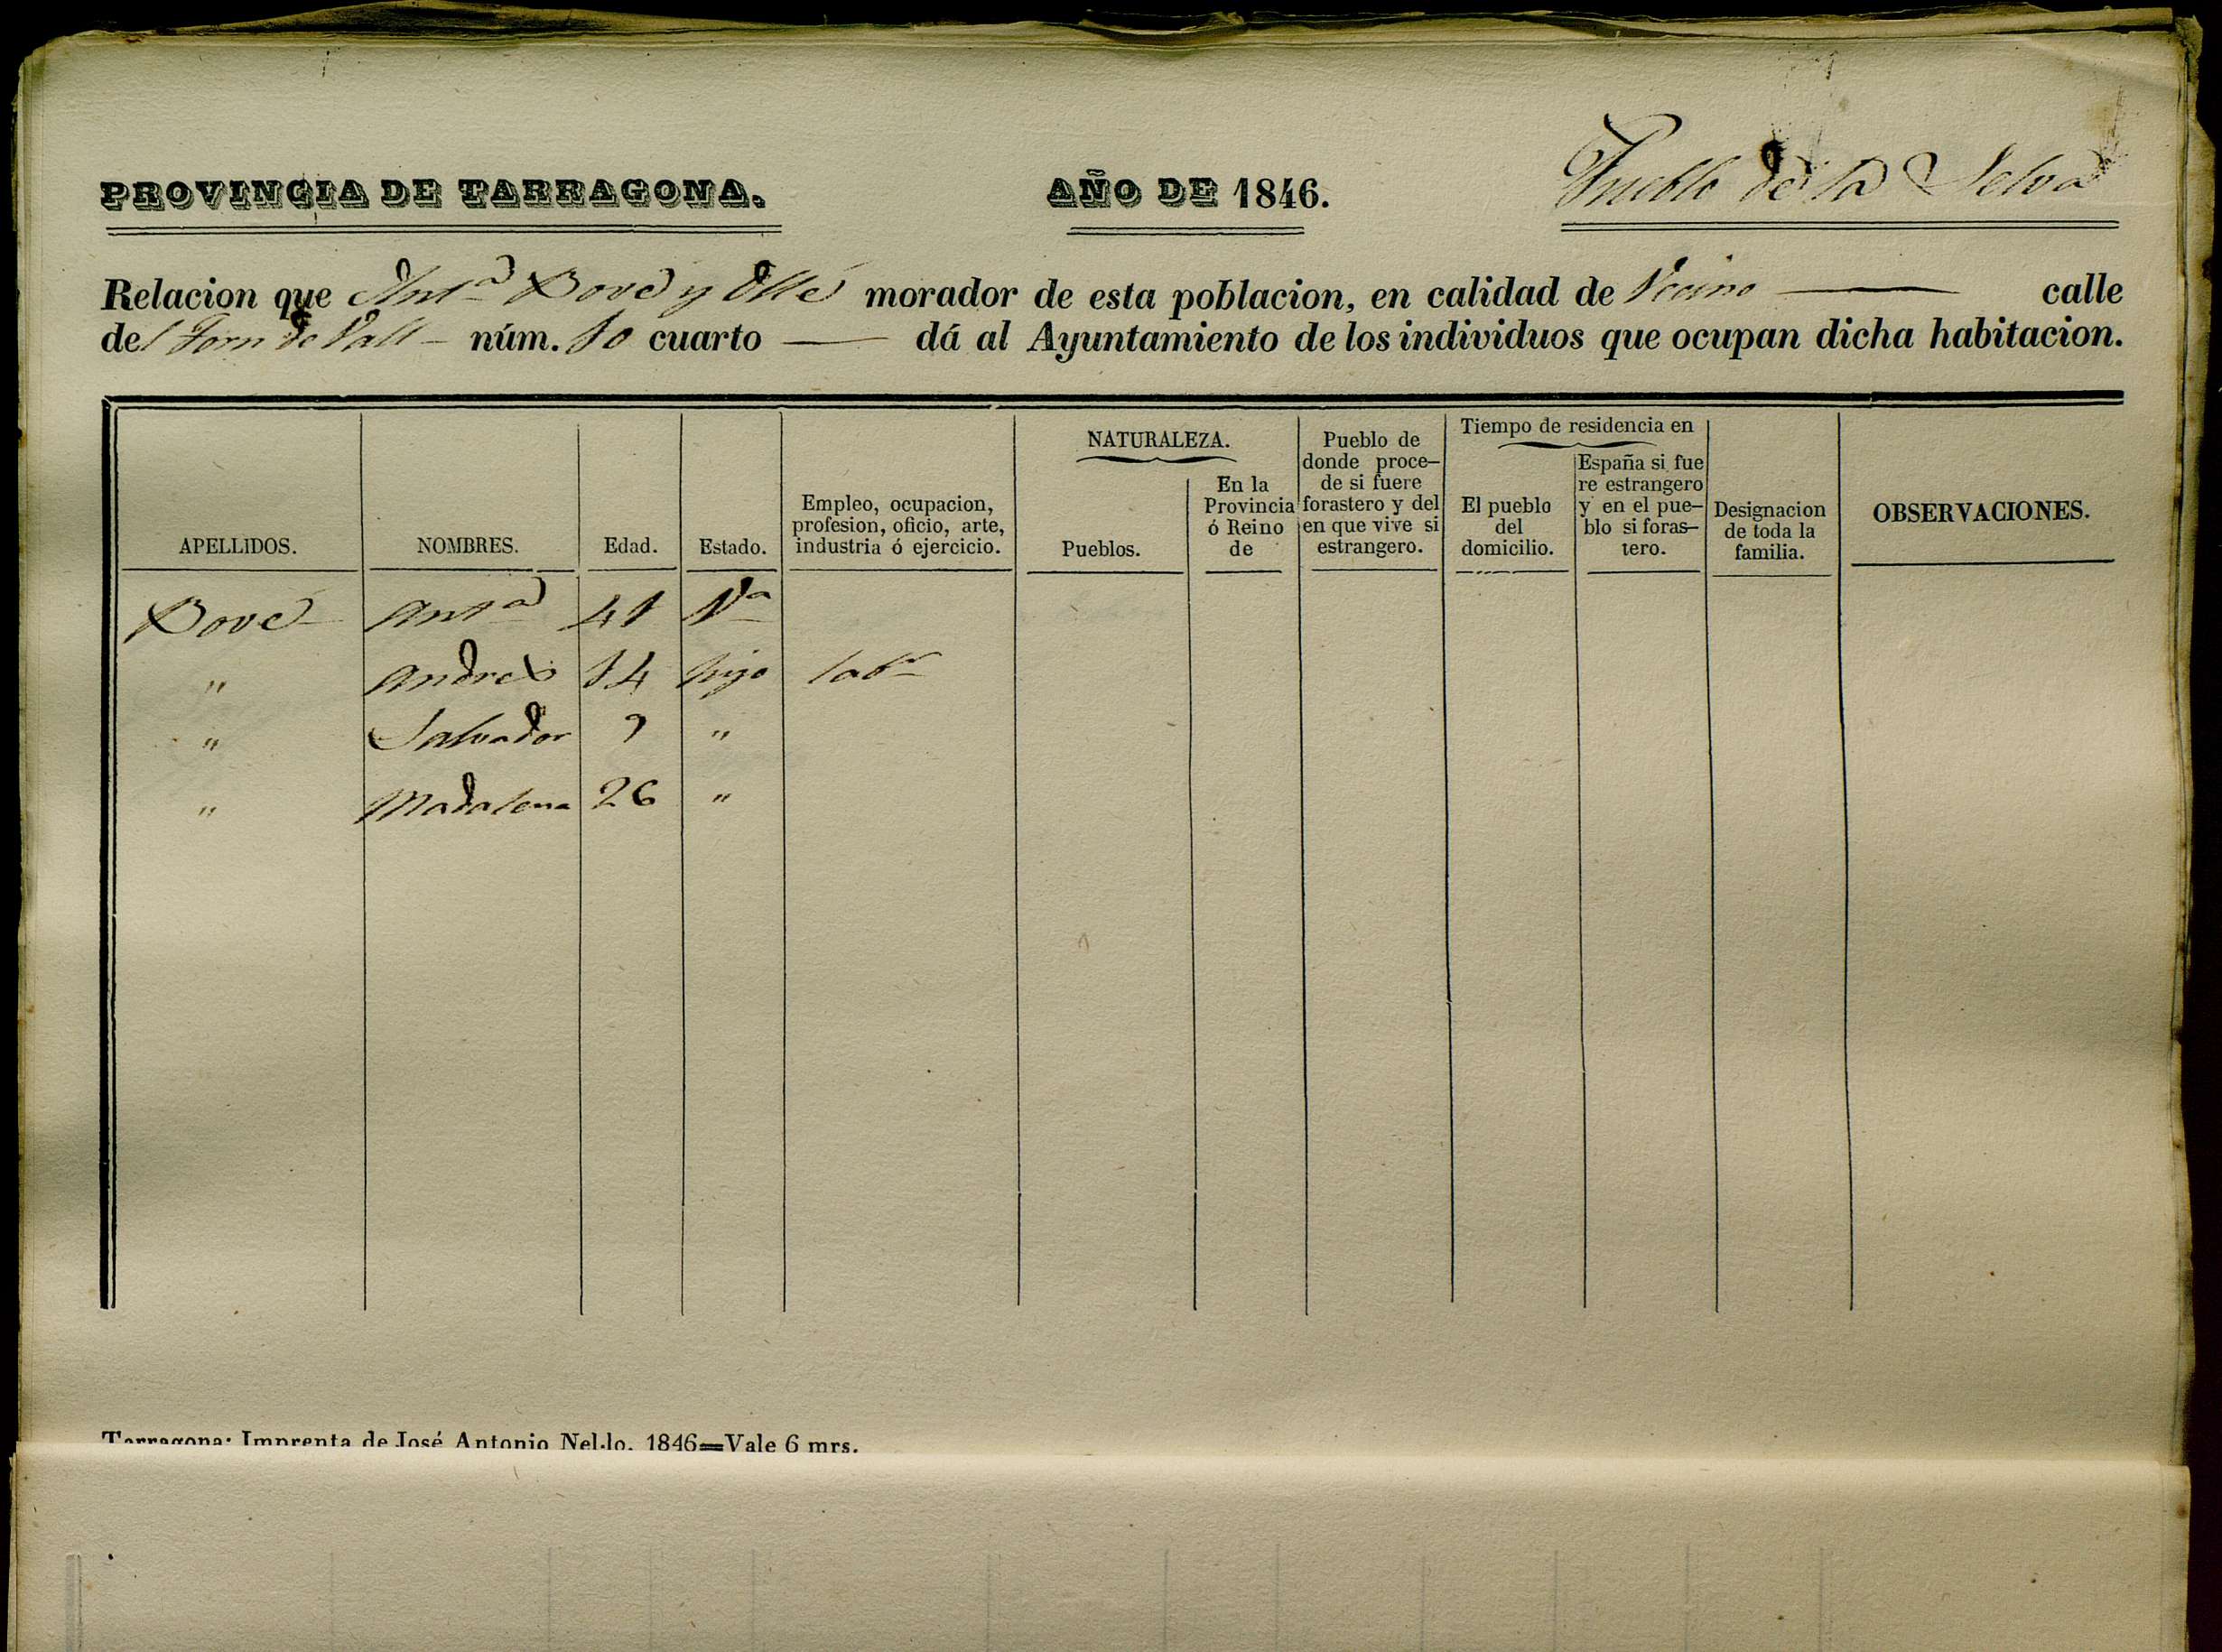 PROVINCIA DE TARRAGONA. AÑO DE 1846. Pueblo de la Selva
Relacion que Antª Bové y Ollé morador de esta poblacion, en calidad de Vecino calle
del Forn de Vall núm. 10 cuarto — dá al Ayuntamiento de los individuos que ocupan dicha habitacion.
APELLIDOS. NOMBRES. Edad. Estado. Empleo, ocupacion, profesion, oficio, arte, industria ó ejercicio. NATURALEZA. Pueblos. En la Provincia ó Reino de Pueblo de donde proce-de si fuere forastero y del en que vive si estrangero. Tiempo de residencia en El pueblo del domicilio. España si fue re estrangero y en el pue-blo si foras-tero. Designacion de toda la familia. OBSERVACIONES.
Bové Antª 41 Vª
" Andres 14 hijo labr
" Salvador 9 "
" Madalena 26 "
Tarragona: Imprenta de José Antonio Nel·lo. 1846=Vale 6 mrs.